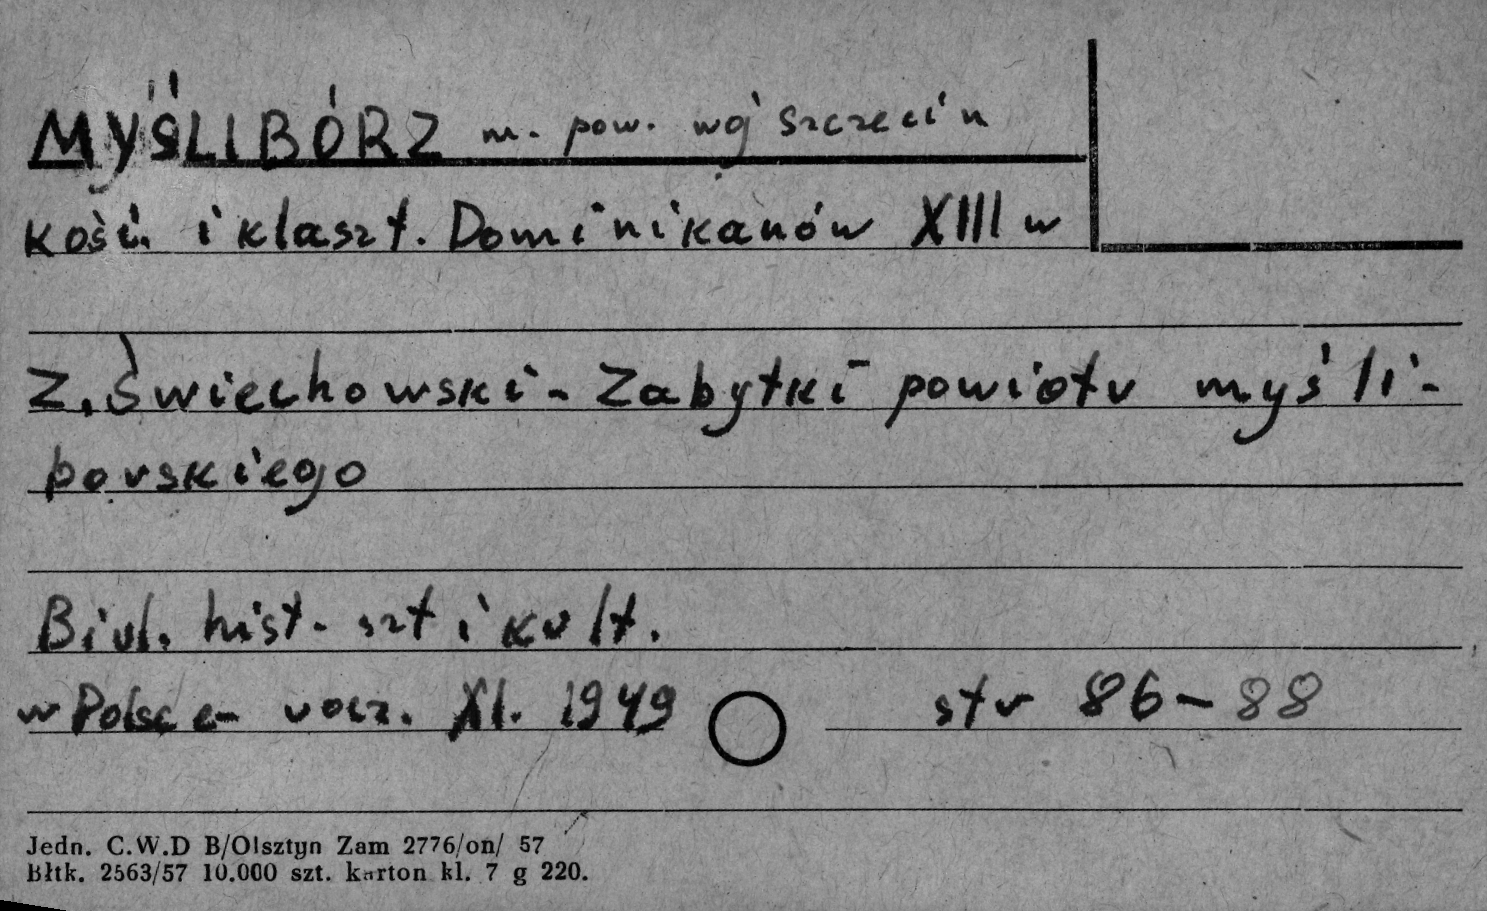 MYŚLIBÓRZ m. pow. woj Szczecin
kość. i klaszt. Dominikanów XIII w
Z. Świechowski - Zabytki powiatu myśli-
borskiego
Biul. hist. szt i kult.
w Polsce rocz. XI. 1949 str 86-88
Jedn. C.W.D B/Olsztyn Zam 2776/on/ 57
Błtk. 2563/57 10.000 szt. karton kl. 7 g 220.